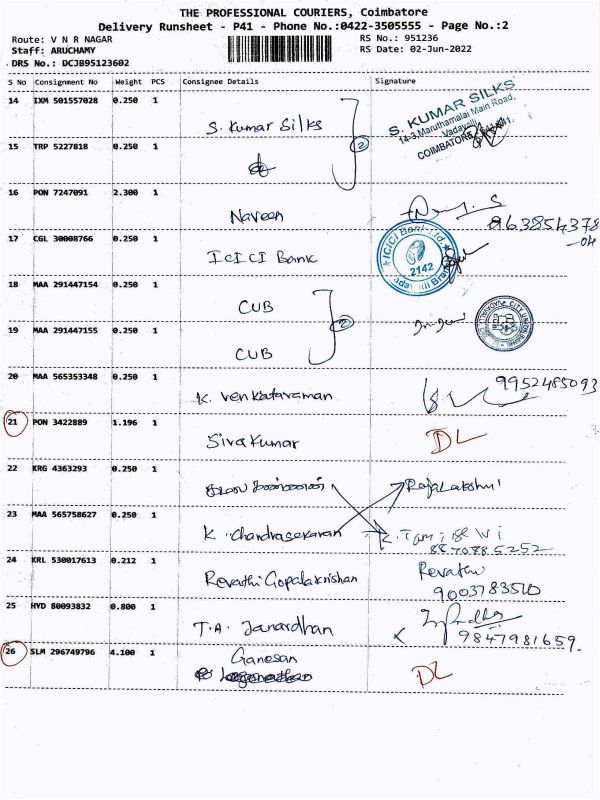 THE PROFESSIONAL COURIERS, Coimbatore
Delivery Runsheet - P41 - Phone No.:0422-3505555 - Page No.:2
Route: V N R NAGAR
RS No.: 951236
Staff: ARUCHAMY
RS Date: 02-Jun-2022
DRS No.: DCJB95123602
S No Consignment No Weight PCS Consignee Details Signature
14 IXM 501557028 0.250 1
S. Kumar Silks
S. KUMAR SILKS
14-3, Maruthamalai Main Road,
Vadavalli
COIMBATORE
15 TRP 5227818 0.250 1
2
16 PON 7247091 2.300 1
Naveen
963854378
-04
17 CGL 30008766 0.250 1
ICICI Bank
ICICI Bank Ltd
2142
18 MAA 291447154 0.250 1
CUB
2
19 MAA 291447155 0.250 1
CUB
20 MAA 565353348 0.250 1
K. Venkataraman
9952485093
21 PON 3422889 1.196 1
Siva Kumar
DL
22 KRG 4363293 0.250 1
RajaLakshmi
23 MAA 565758627 0.250 1
K. Chandrasekaran
K. Tamil Selvi
8870785252
24 KRL 530017613 0.212 1
Revathi Gopalakrishan
Revathi
9003783510
25 HYD 80093832 0.800 1
T.A. Janardhan
9847981659.
26 SLM 296749796 4.100 1
Ganesan
DL